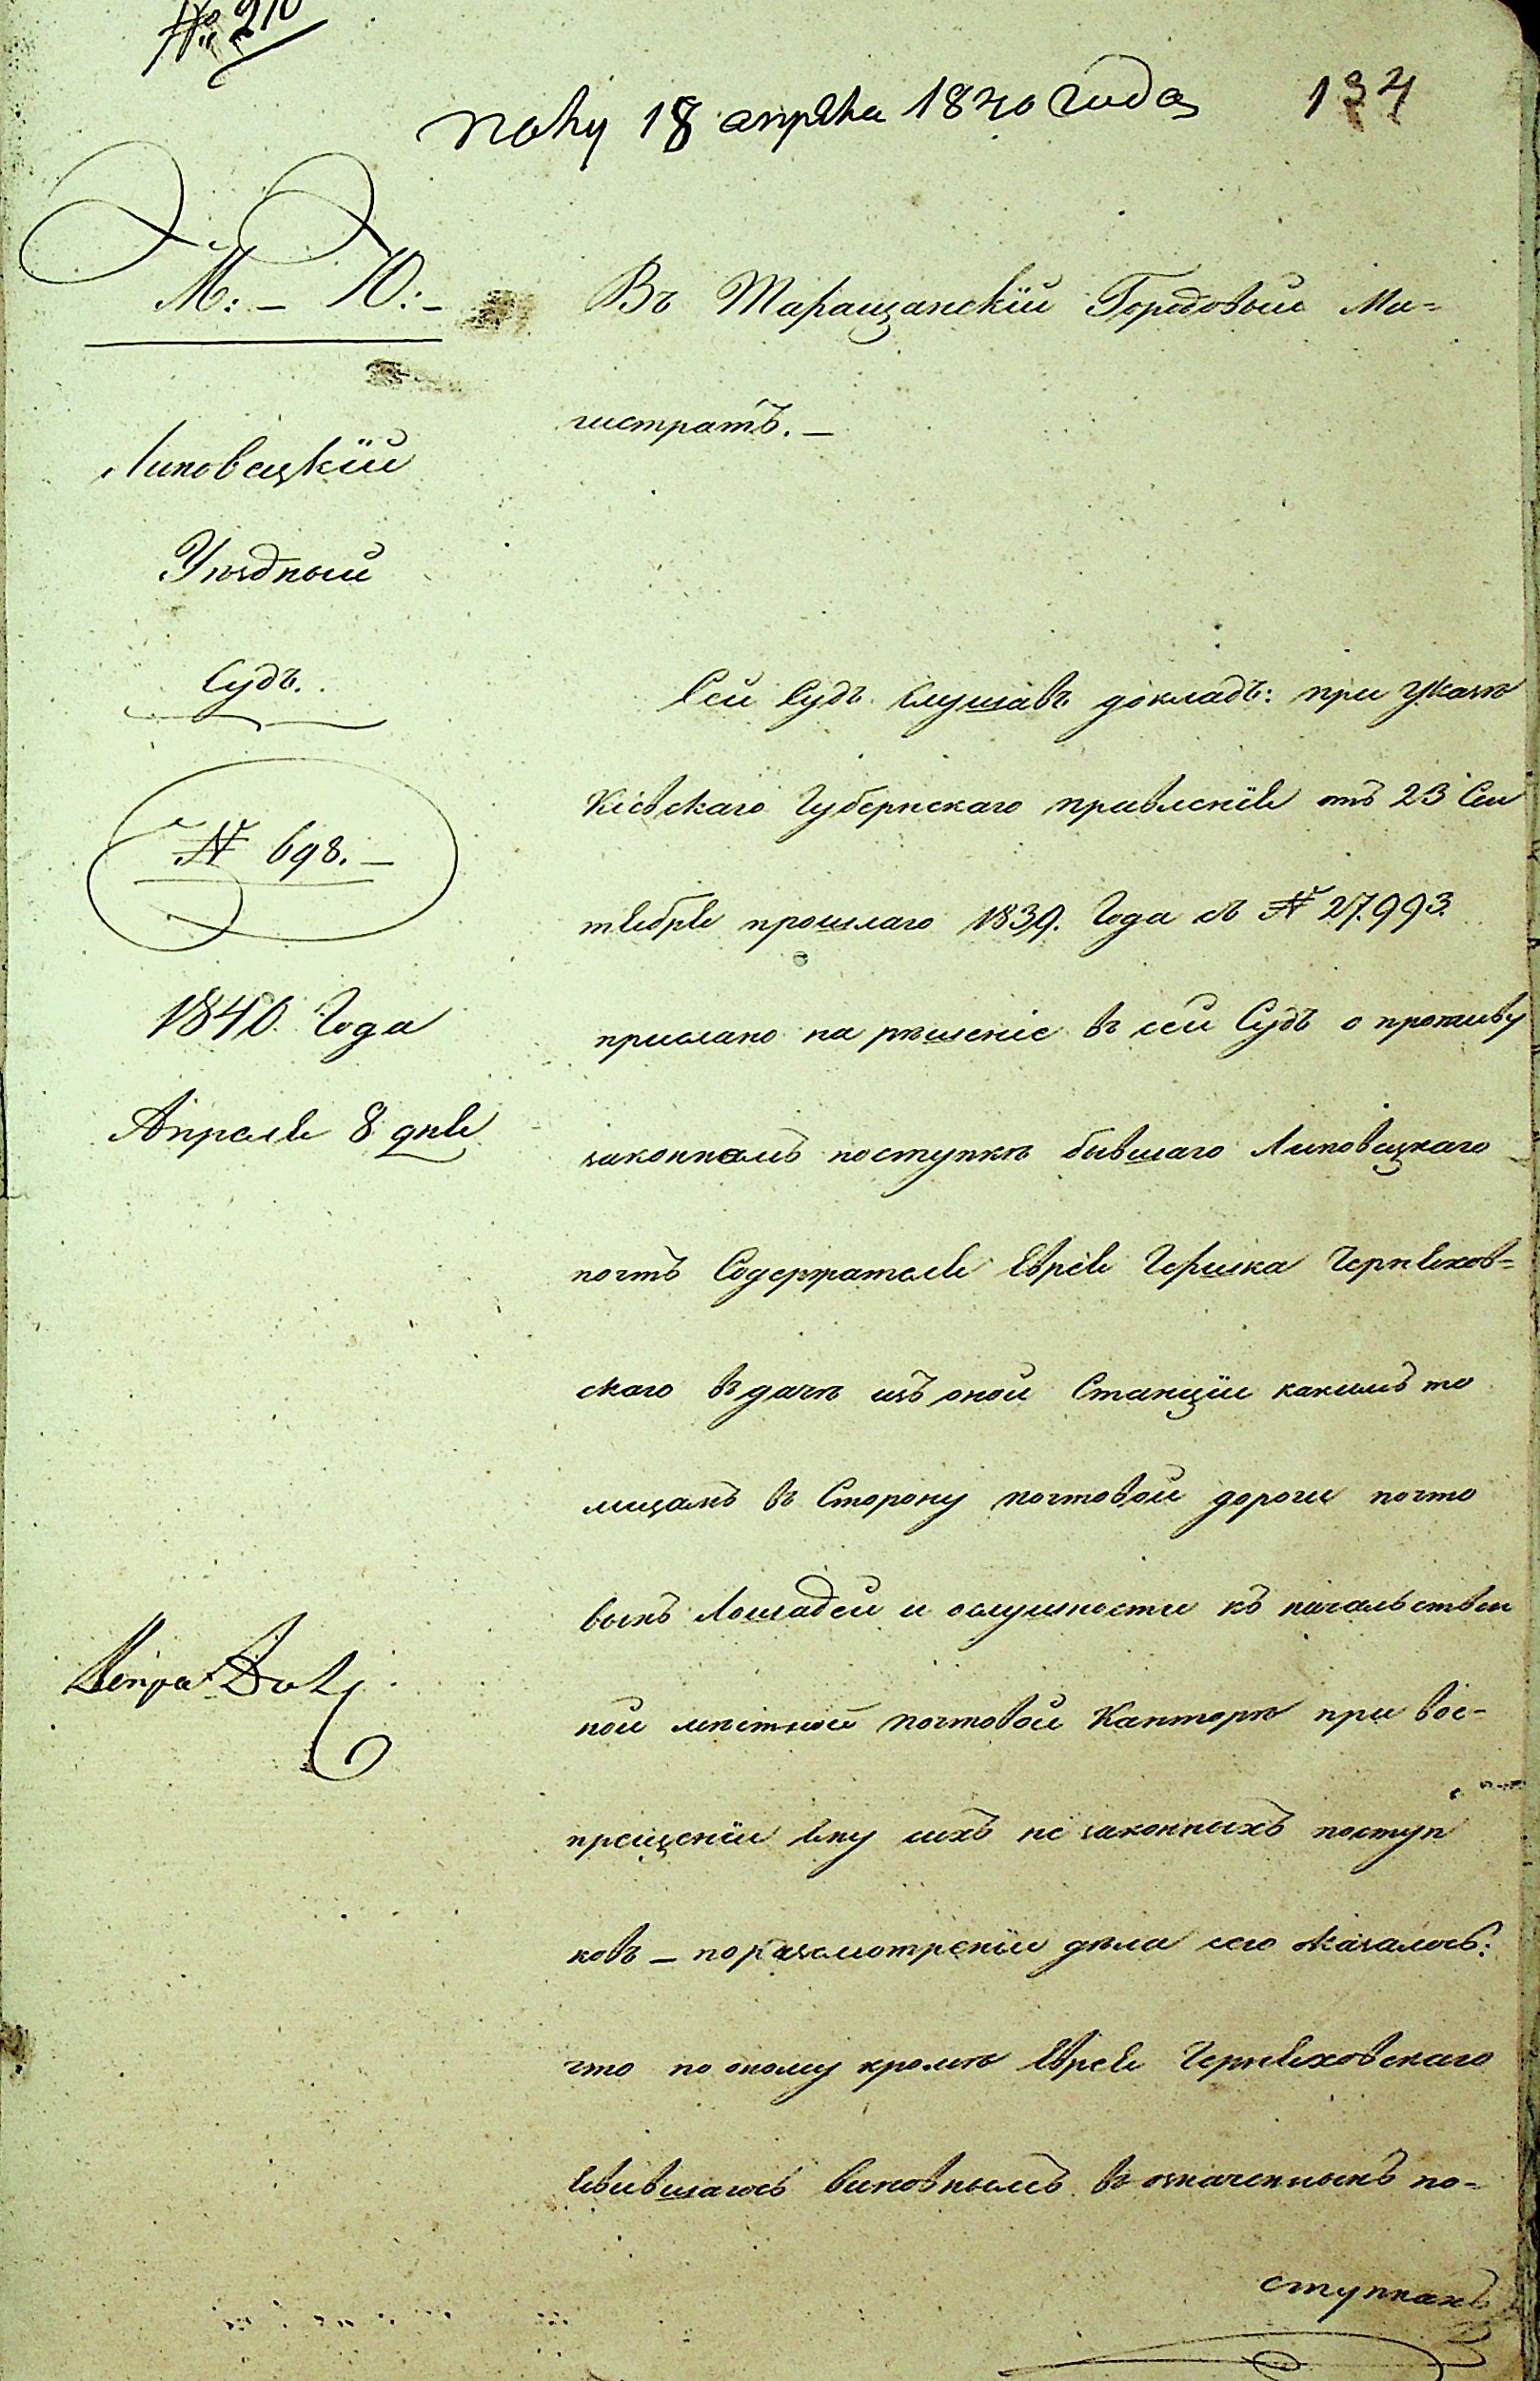 № 210
полу 18 апреля 1840 года 134
М:– Ю:–
Въ Таращанскій Городовый Ма=
гистратъ.–
Липовецкій
Уѣздный
Судъ.
№ 698.–
1840 Года
Апреля 8 дня
Сей Судъ слушавъ докладъ: при указѣ
Кіевскаго Губернскаго правленія отъ 23 Сен
тября прошлаго 1839. Года съ № 27993
прислано на рѣшеніе въ сей Судъ о противу
законномъ поступкѣ бывшаго Липовецкаго
почтъ Содержателя Еврея Гершка Черняхов=
скаго въ дачѣ изъ оной Станціи какимъ то
лицамъ въ Сторону почтовой дороги почто
выхъ Лошадей и ослушности къ начальствен
ной мѣстной почтовой Канторѣ при вос-
прещеніи ему ихъ не законныхъ поступ
ковъ – по разсмотреніи дѣла сего оказалось:
что по оному кромѣ Еврея Черняховскаго
явившагось виновнымъ въ означенныхъ по=
ступкахъ